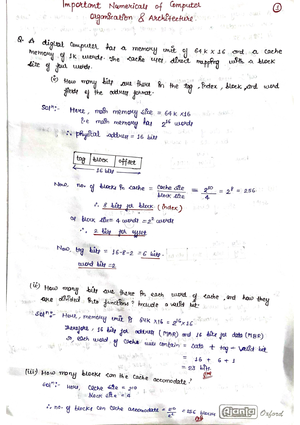 Important Numericals of Computer
Organisation & Architecture
1
Q. A digital computer has a memory unit of 64K x 16 and a cache
memory of 1K words. The cache uses direct mapping with a block
size of four words.
(i) How many bits are there in the tag, index, block, and word
fields of the address format.
Sol":- Here, main memory size = 64K x 16
i.e main memory has 2^16 words
∴ physical address = 16 bits
tag block offset
16 bits
Now, no. of blocks in cache = cache size / block size = 2^10 / 4 = 2^8 = 256
∴ 8 bits for block (index)
block size = 4 words = 2^2 words
∴ 2 bits for offset
Now, tag bits = 16-8-2 = 6 bits.
word bits = 2
(ii) How many bits are there in each word of cache, and how they
are divided into functions? Include a valid bit.
Sol":- Here, memory unit is 64K x 16 = 2^16 x 16
Therefore, 16 bits for address (MAR) and 16 bits for data (MBR)
so each word of cache will contain = data + tag + valid bit
= 16 + 6 + 1
= 23 bits
(iii) How many blocks can the cache accomodate?
Sol":- Here, cache size = 2^10
Block size = 4
∴ no. of blocks can cache accomodate = 2^10 / 2^2 = 256 blocks
Ajanta Oxford